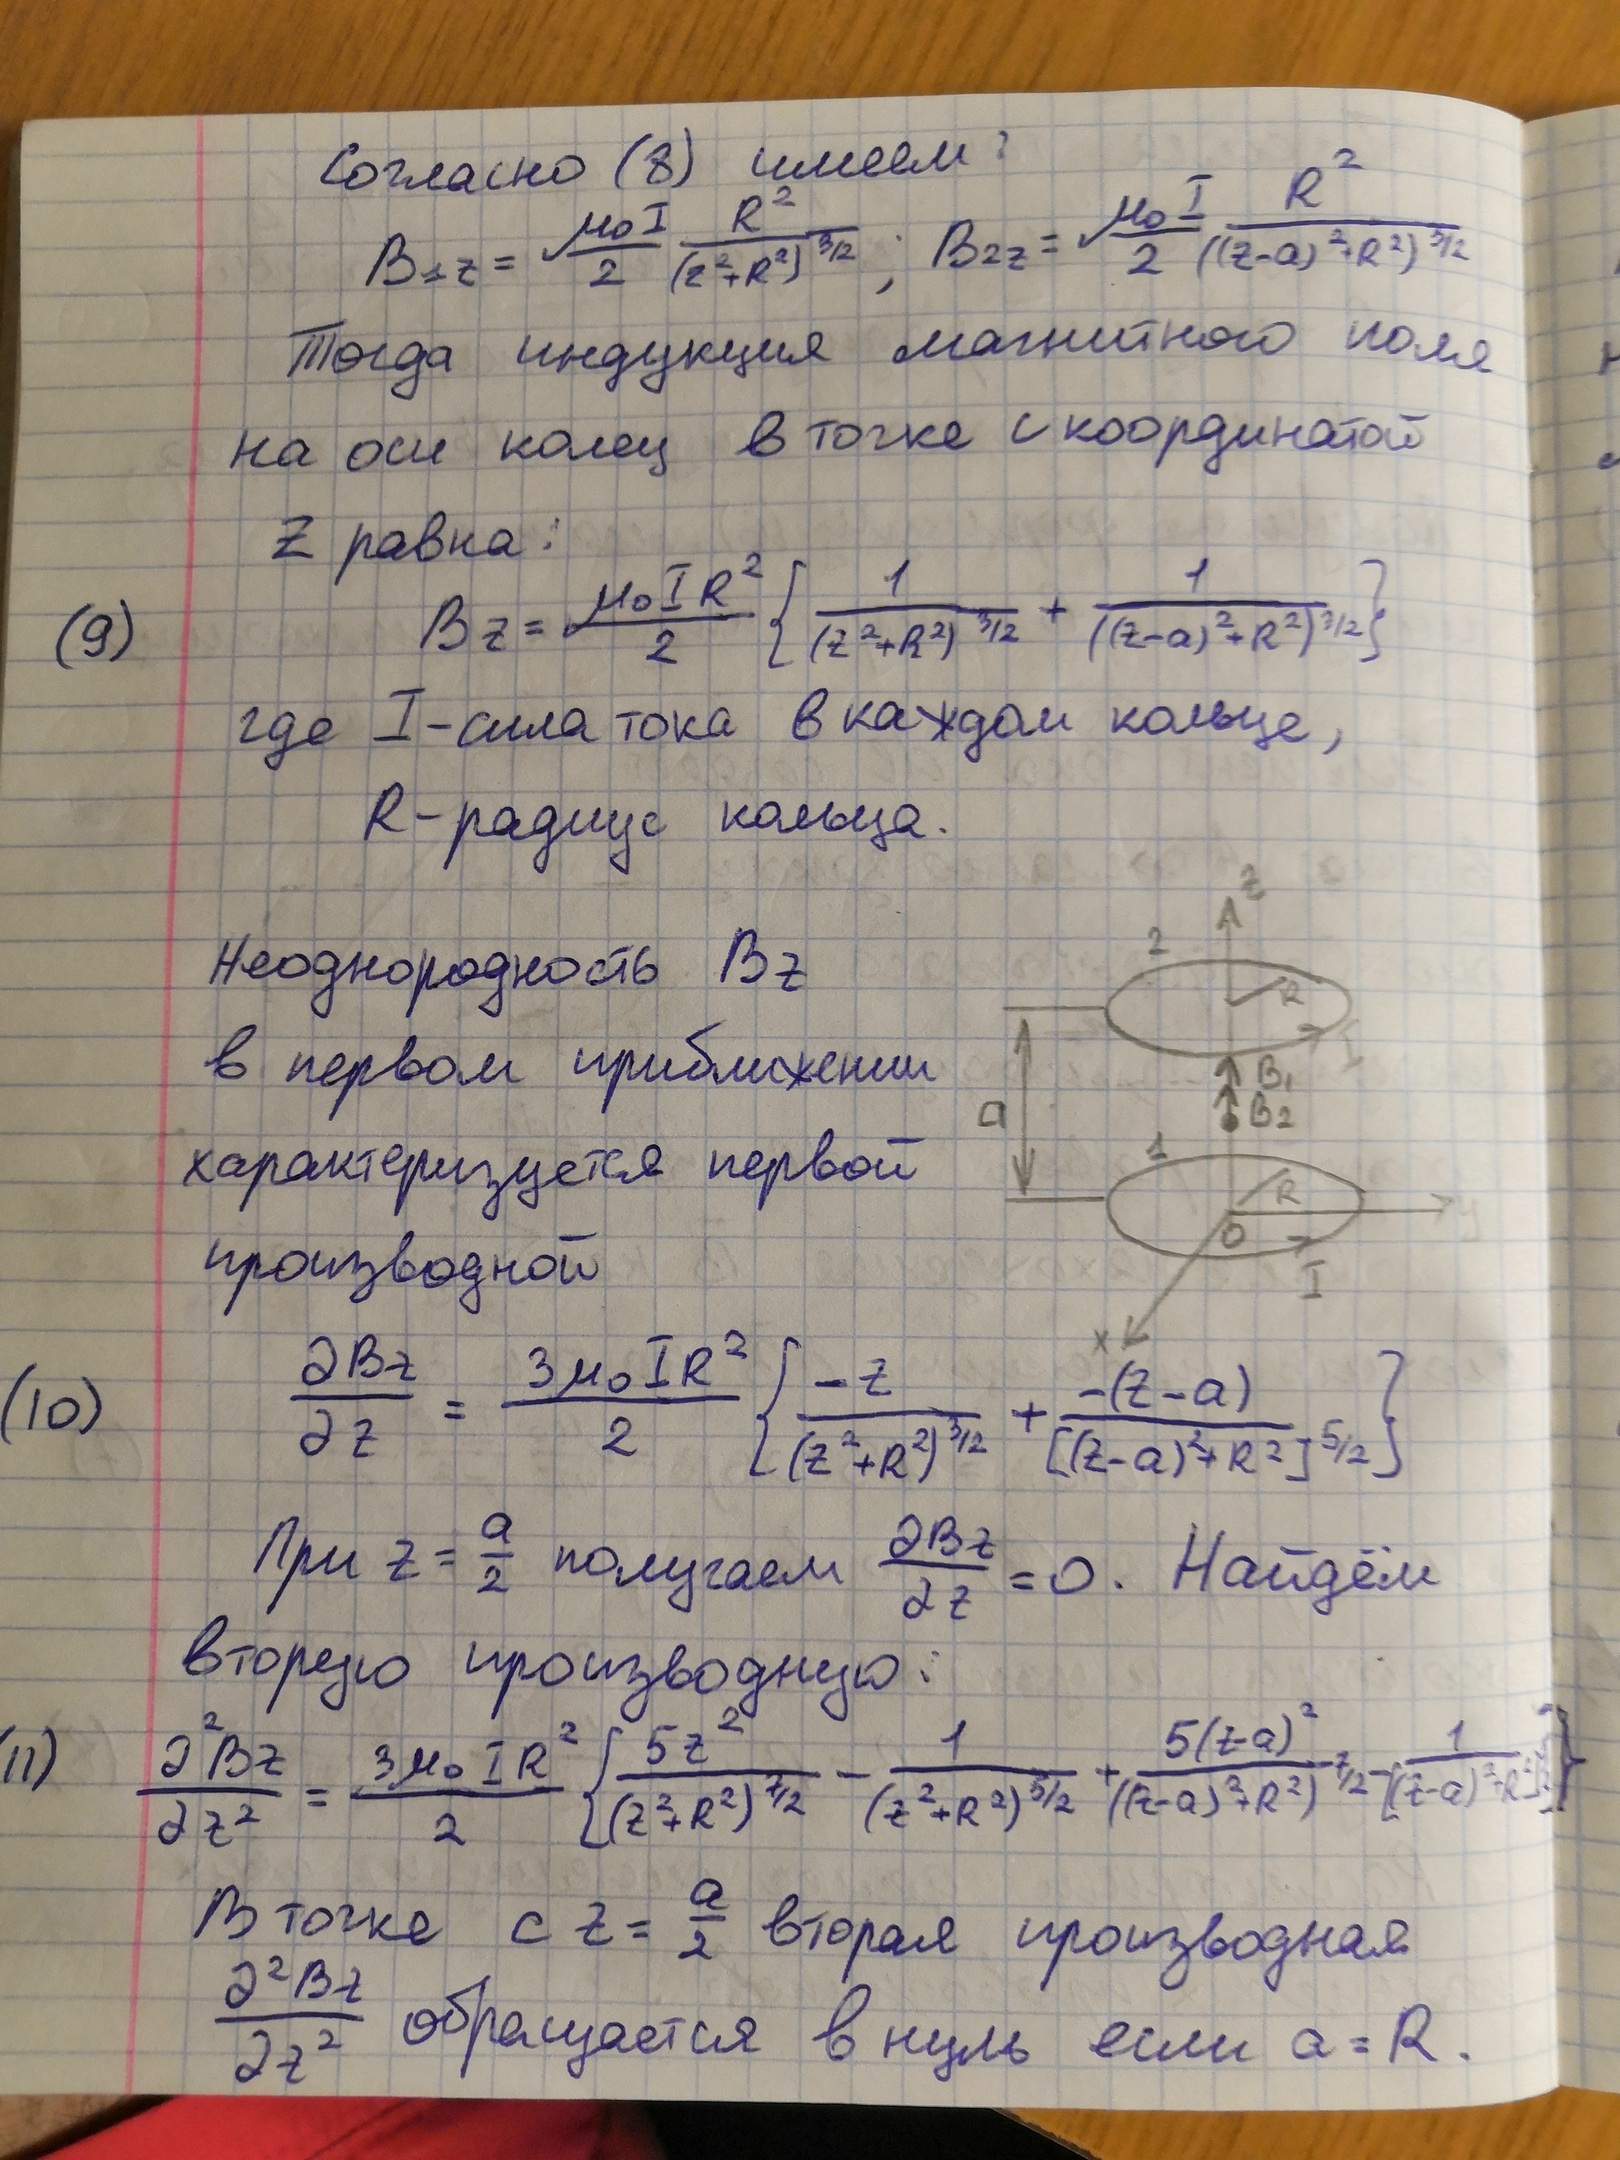 Согласно (8) имеем:
B₁z = μ₀I/2 R²/(z²+R²)^3/2 ; B₂z = μ₀I/2 R²/((z-a)²+R²)^3/2
Тогда индукция магнитного поля
на оси колец в точке с координатой
z равна:
(9) Bz = μ₀IR²/2 { 1/(z²+R²)^3/2 + 1/((z-a)²+R²)^3/2 }
где I - сила тока в каждом кольце,
R - радиус кольца.
Неоднородность Bz
в первом приближении
характеризуется первой
производной
z
2
R
I
B₁
B₂
a
1
R
O
y
I
x
(10) ∂Bz/∂z = 3μ₀IR²/2 { -z/(z²+R²)^3/2 + -(z-a)/[(z-a)²+R²]^5/2 }
При z = a/2 получаем ∂Bz/∂z = 0. Найдём
вторую производную:
(11) ∂²Bz/∂z² = 3μ₀IR²/2 { 5z²/(z²+R²)^7/2 - 1/(z²+R²)^5/2 + 5(z-a)²/((z-a)²+R²)^7/2 - 1/[(z-a)²+R²] }
В точке с z = a/2 вторая производная
∂²Bz/∂z² обращается в нуль если a = R.